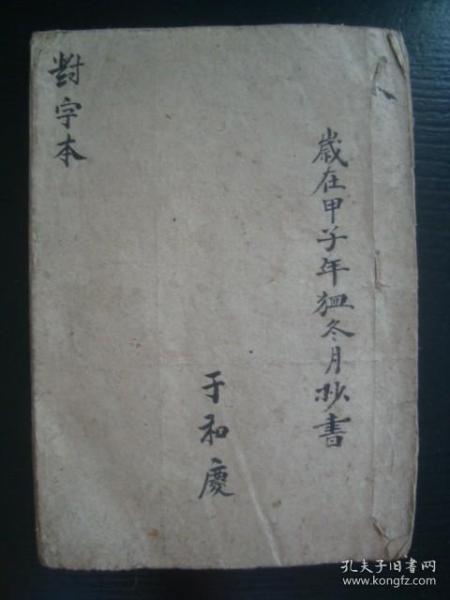 歲在甲子年猛冬月抄書
于和慶
對字本
孔夫子旧书网
www.kongfz.com